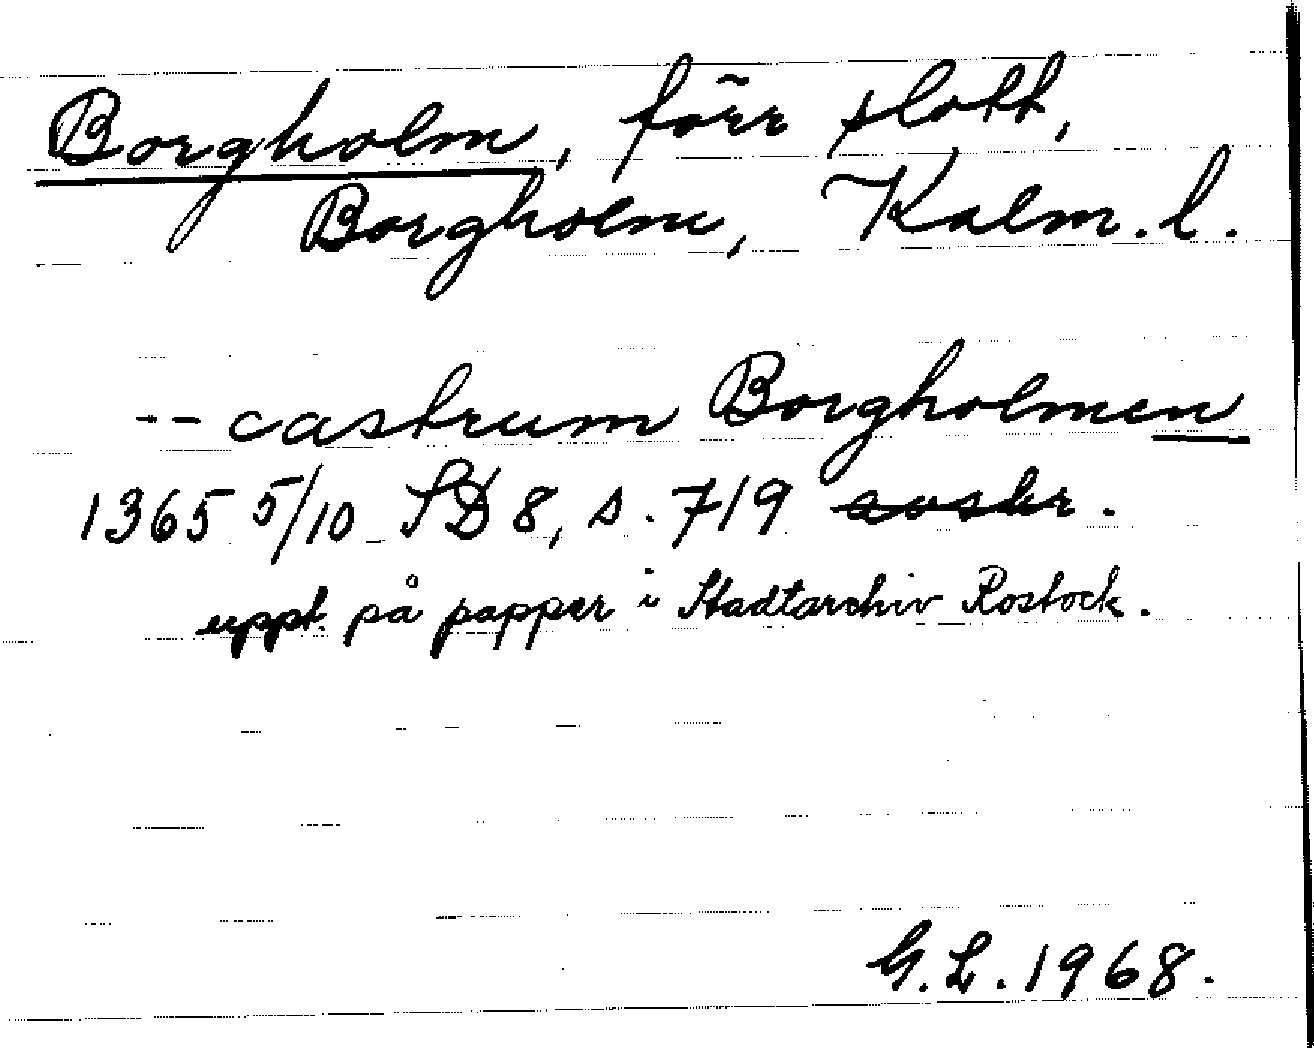 Borgholm, förr slott,
Borgholm, Kalm. l.
-- castrum Borgholmen
1365 5/10 SD 8, s. 719 avskr.
uppt. på papper i Stadtarchiv Rostock.
G. L. 1968.